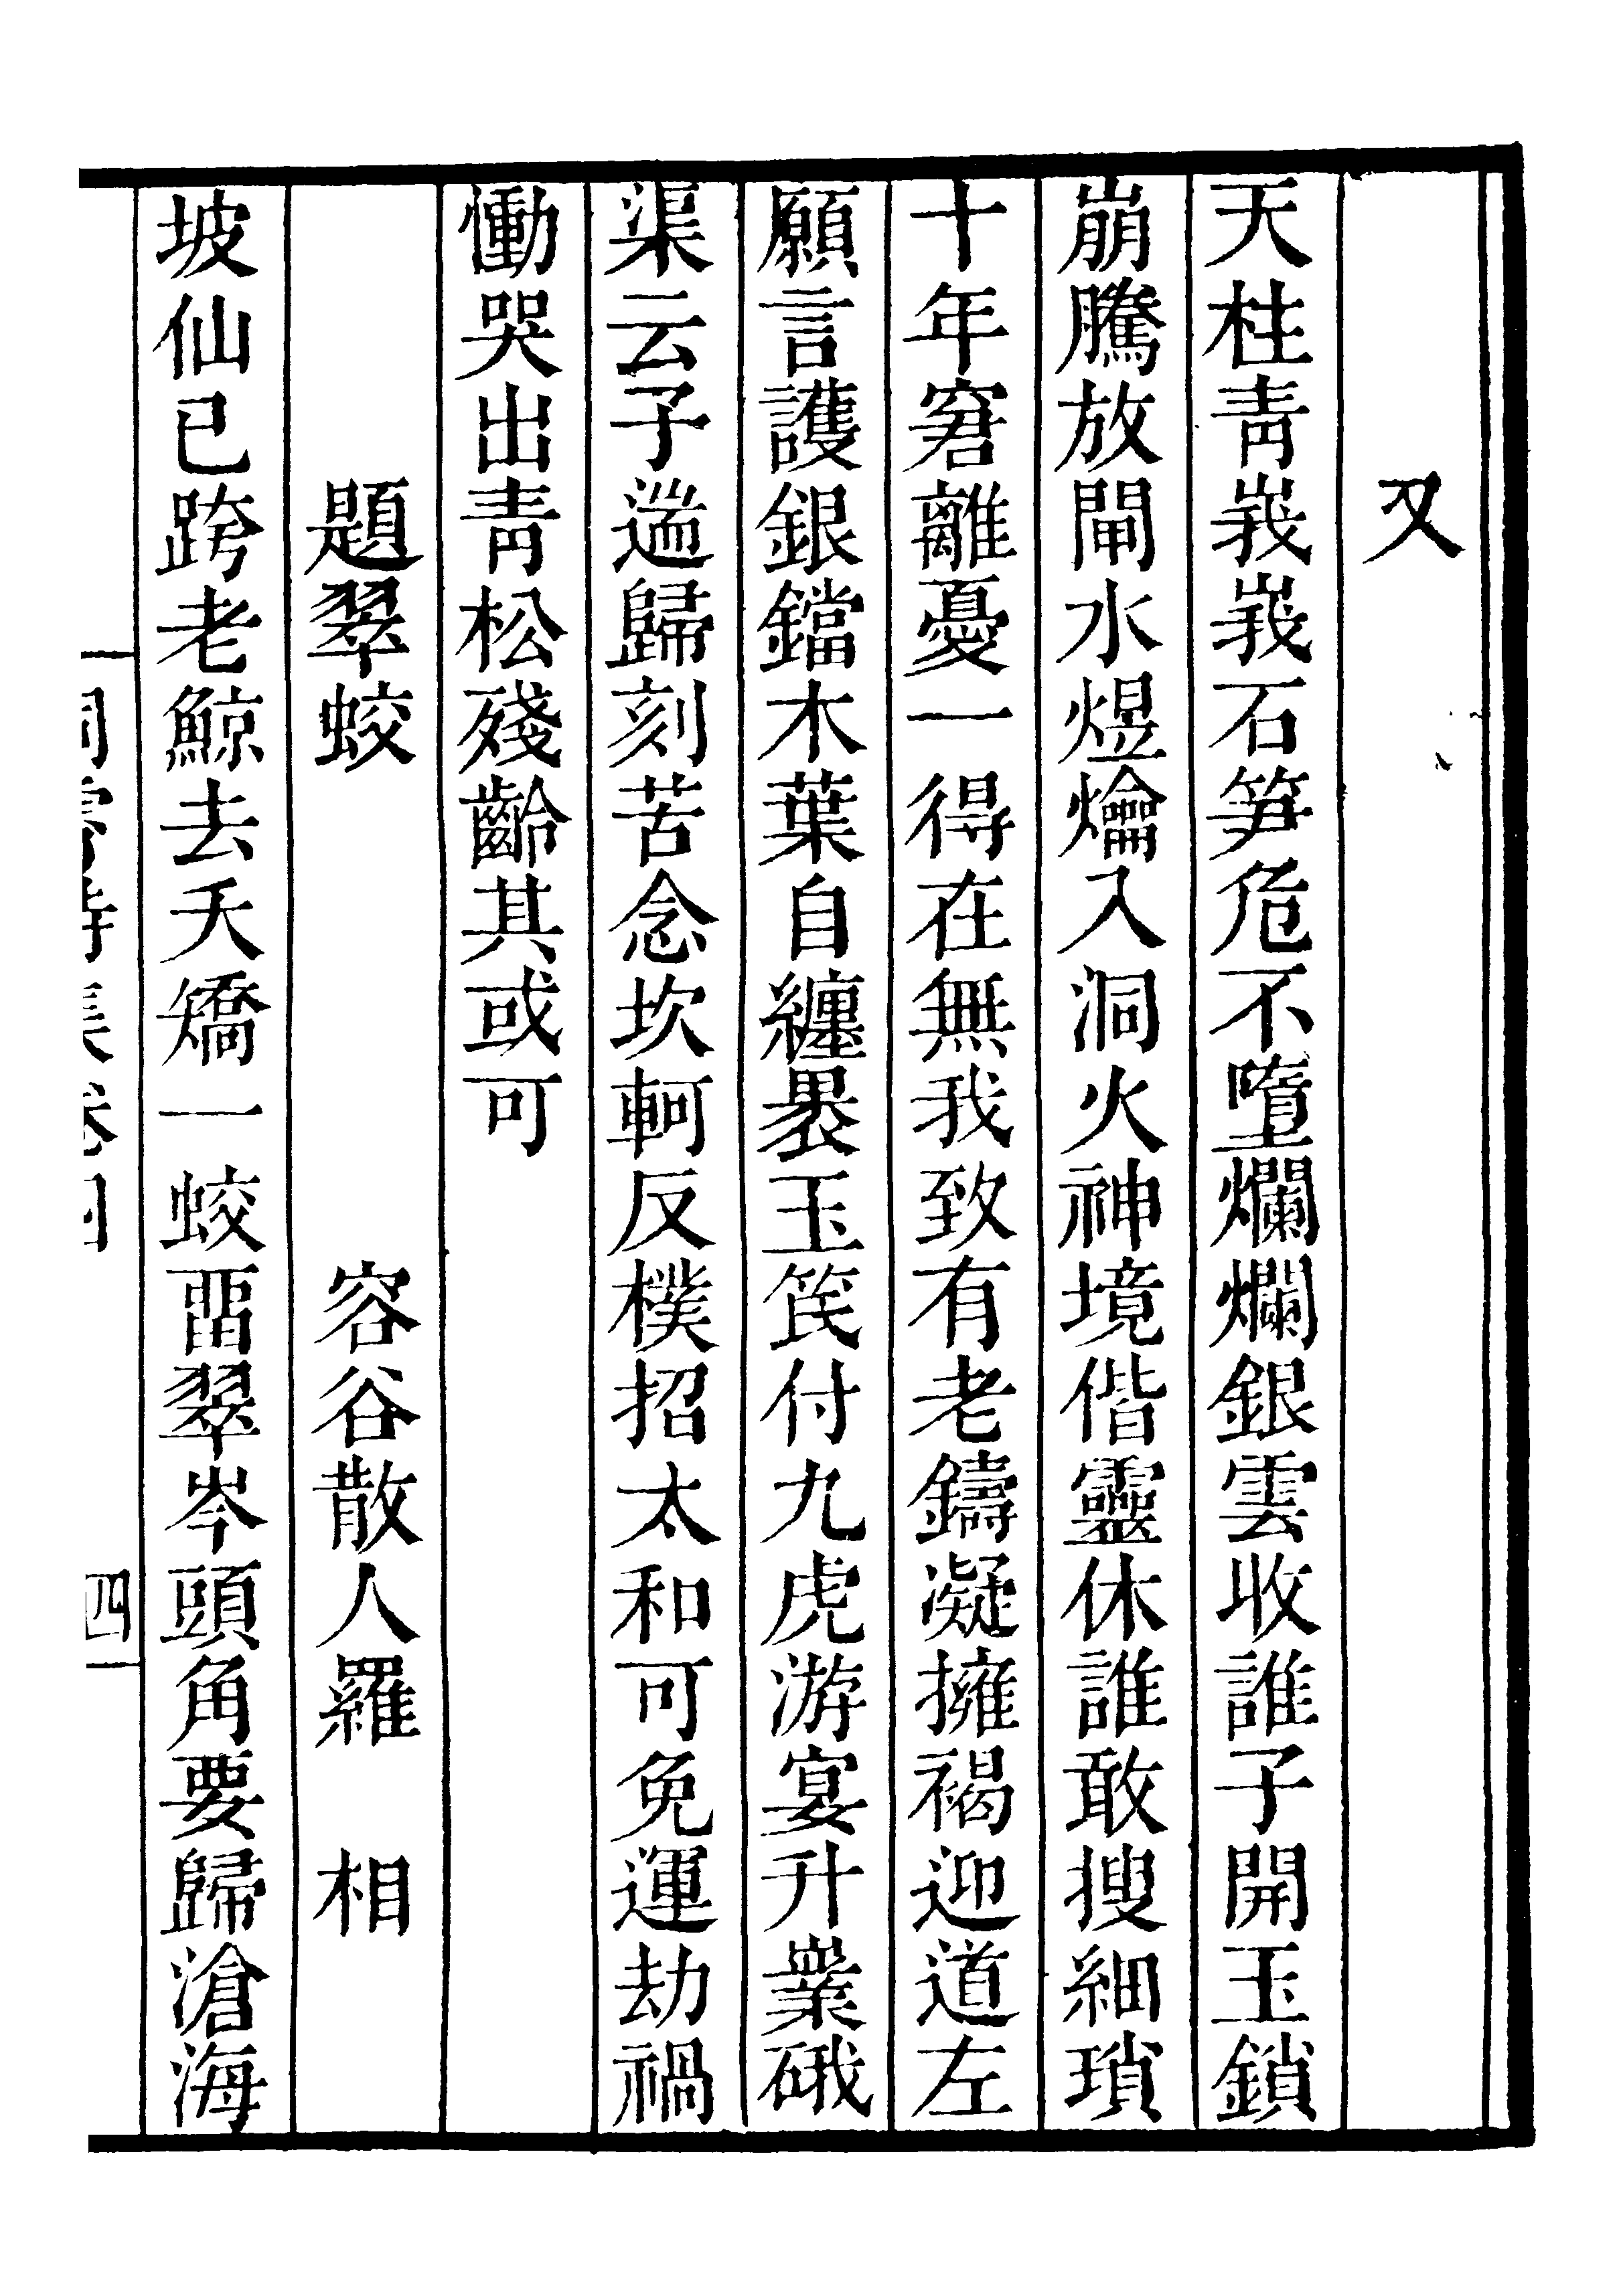 又
天柱青峩峩石笋危不墮爛爛銀雲收誰子開玉鎖
崩騰放閘水煜爚入洞火神境偕靈休誰敢搜細瑣
十年窘離憂一得在無我致有老鑄凝擁褐迎道左
願言護銀鐺木葉自纏裹玉笢付九虎游宴升衆硪
渠云子遄歸刻苦念坎軻反樸招太和可免運劫禍
慟哭出青松殘齡其或可
題翠蛟 容谷散人羅 相
坡仙已跨老鯨去夭矯一蛟畱翠岑頭角要歸滄海
洞霄詩集卷四 一